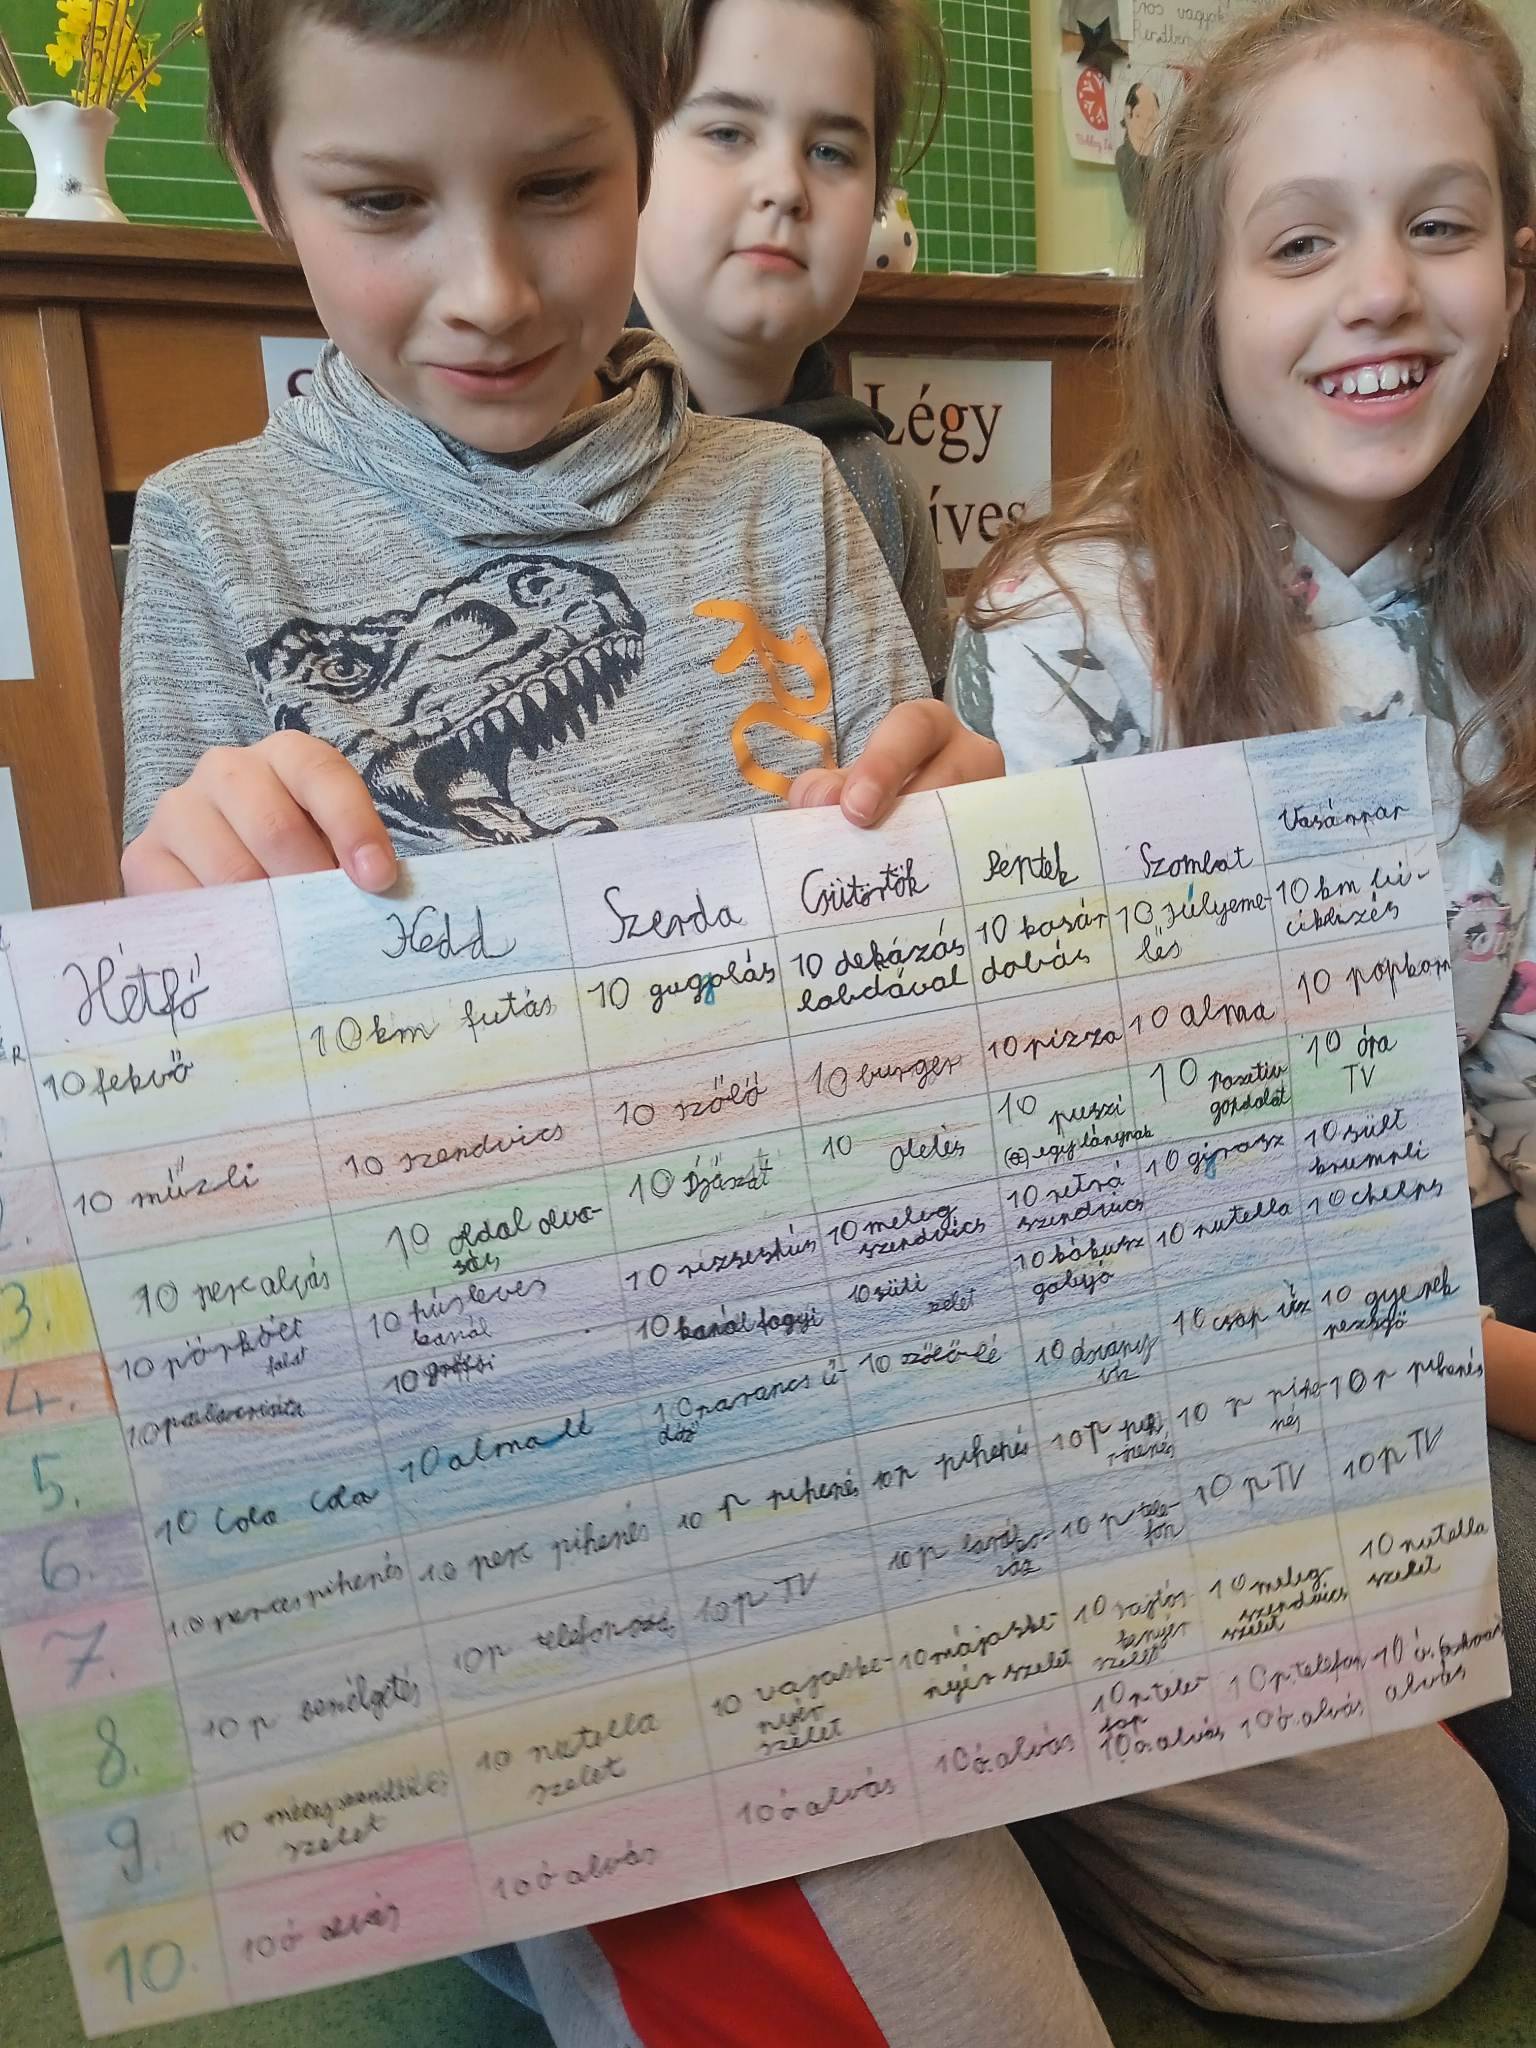 Rendben
Légy
íves
Hétfő
Kedd
Szerda
Csütörtök
Péntek
Szombat
Vasárnap
10 fekvő
10 km futás
10 guggolás
10 dekázás
labdával
10 kosár
dobás
10 súlyeme-
lés
10 km bi-
ciklizés
10 műzli
10 szendvics
10 szőlő
10 burger
10 pizza
10 alma
10 popkorn
3.
10 perc alvás
10 oldal olva-
sás
10
10 ölelés
10 puszi
egy lánynak
10 pozitív
gondolat
10 óra
TV
4.
10 pörkölt
falat
10 húsleves
kanál
10 rizseshús
10 meleg
szendvics
10
szendvics
10 girosz
10 sült
krumpli
5.
10 palacsinta
10
10 kanál fagyi
10 süti
szelet
10 kókusz
golyó
10 nutella
10 cheeps
6.
10 Cola Cola
10 alma lé
10 narancs ü-
dítő
10 szőlő lé
10 ásvány
víz
10 csap víz
10 gyerek
pezsgő
7.
10 perces pihenés
10 perc pihenés
10 p pihenés
10 p pihenés
10 p pi-
henés
10 p pihe-
nés
10 p pihenés
8.
10 p beszélgetés
10 p telefonozás
10 p TV
10 p
10 p tele-
fon
10 p TV
10 p TV
9.
10 melegszendvics
szelet
10 nutella
szelet
10 vajaske-
nyér
szelet
10 májaske-
nyér szelet
10 sajtos
kenyér
szelet
10 meleg
szendvics
szelet
10 nutella
szelet
10.
10 ó alvás
10 ó alvás
10 ó alvás
10 ó. alvás
10 p tele-
10 ó. alvás
10 p. telefon
10 ó. alvás
10 ó.
alvás